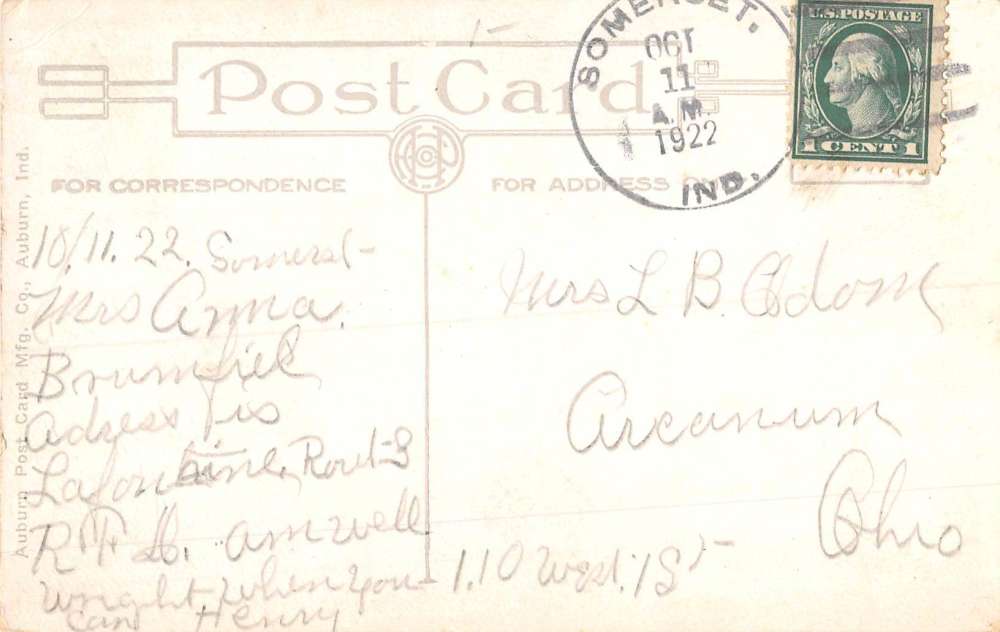 Post Card
SOMERSET,
OCT
11
A.M.
1922
IND.
U.S. POSTAGE
1 CENT 1
FOR CORRESPONDENCE
FOR ADDRESS
Auburn Post Card Mfg. Co., Auburn, Ind.
10/11. 22. Somerset
Mrs Anna.
Brumfiel
Adress is
Lafontaine, Rout 3
R F D. am well
wright when you
can Henry
Mrs L B Odom
Arcanum
Ohio
110 West. 1 St